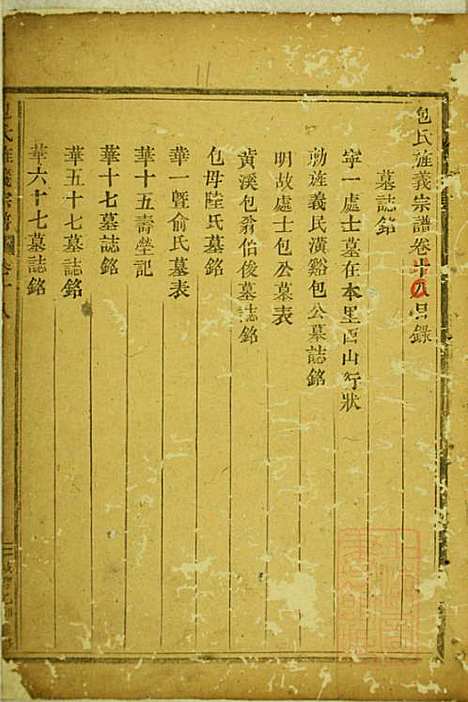 包氏旌義宗譜卷十八目錄
墓誌銘
寧一處士墓在本里西山行狀
勅旌義民潢谿包公墓誌銘
明故處士包公墓表
黄溪包翁伯俊墓誌銘
包母陸氏墓表
華一暨俞氏墓表
華十五壽塋記
華十七墓誌銘
華五十七墓誌銘
華六十七墓誌銘
包氏旌義宗譜 卷十八